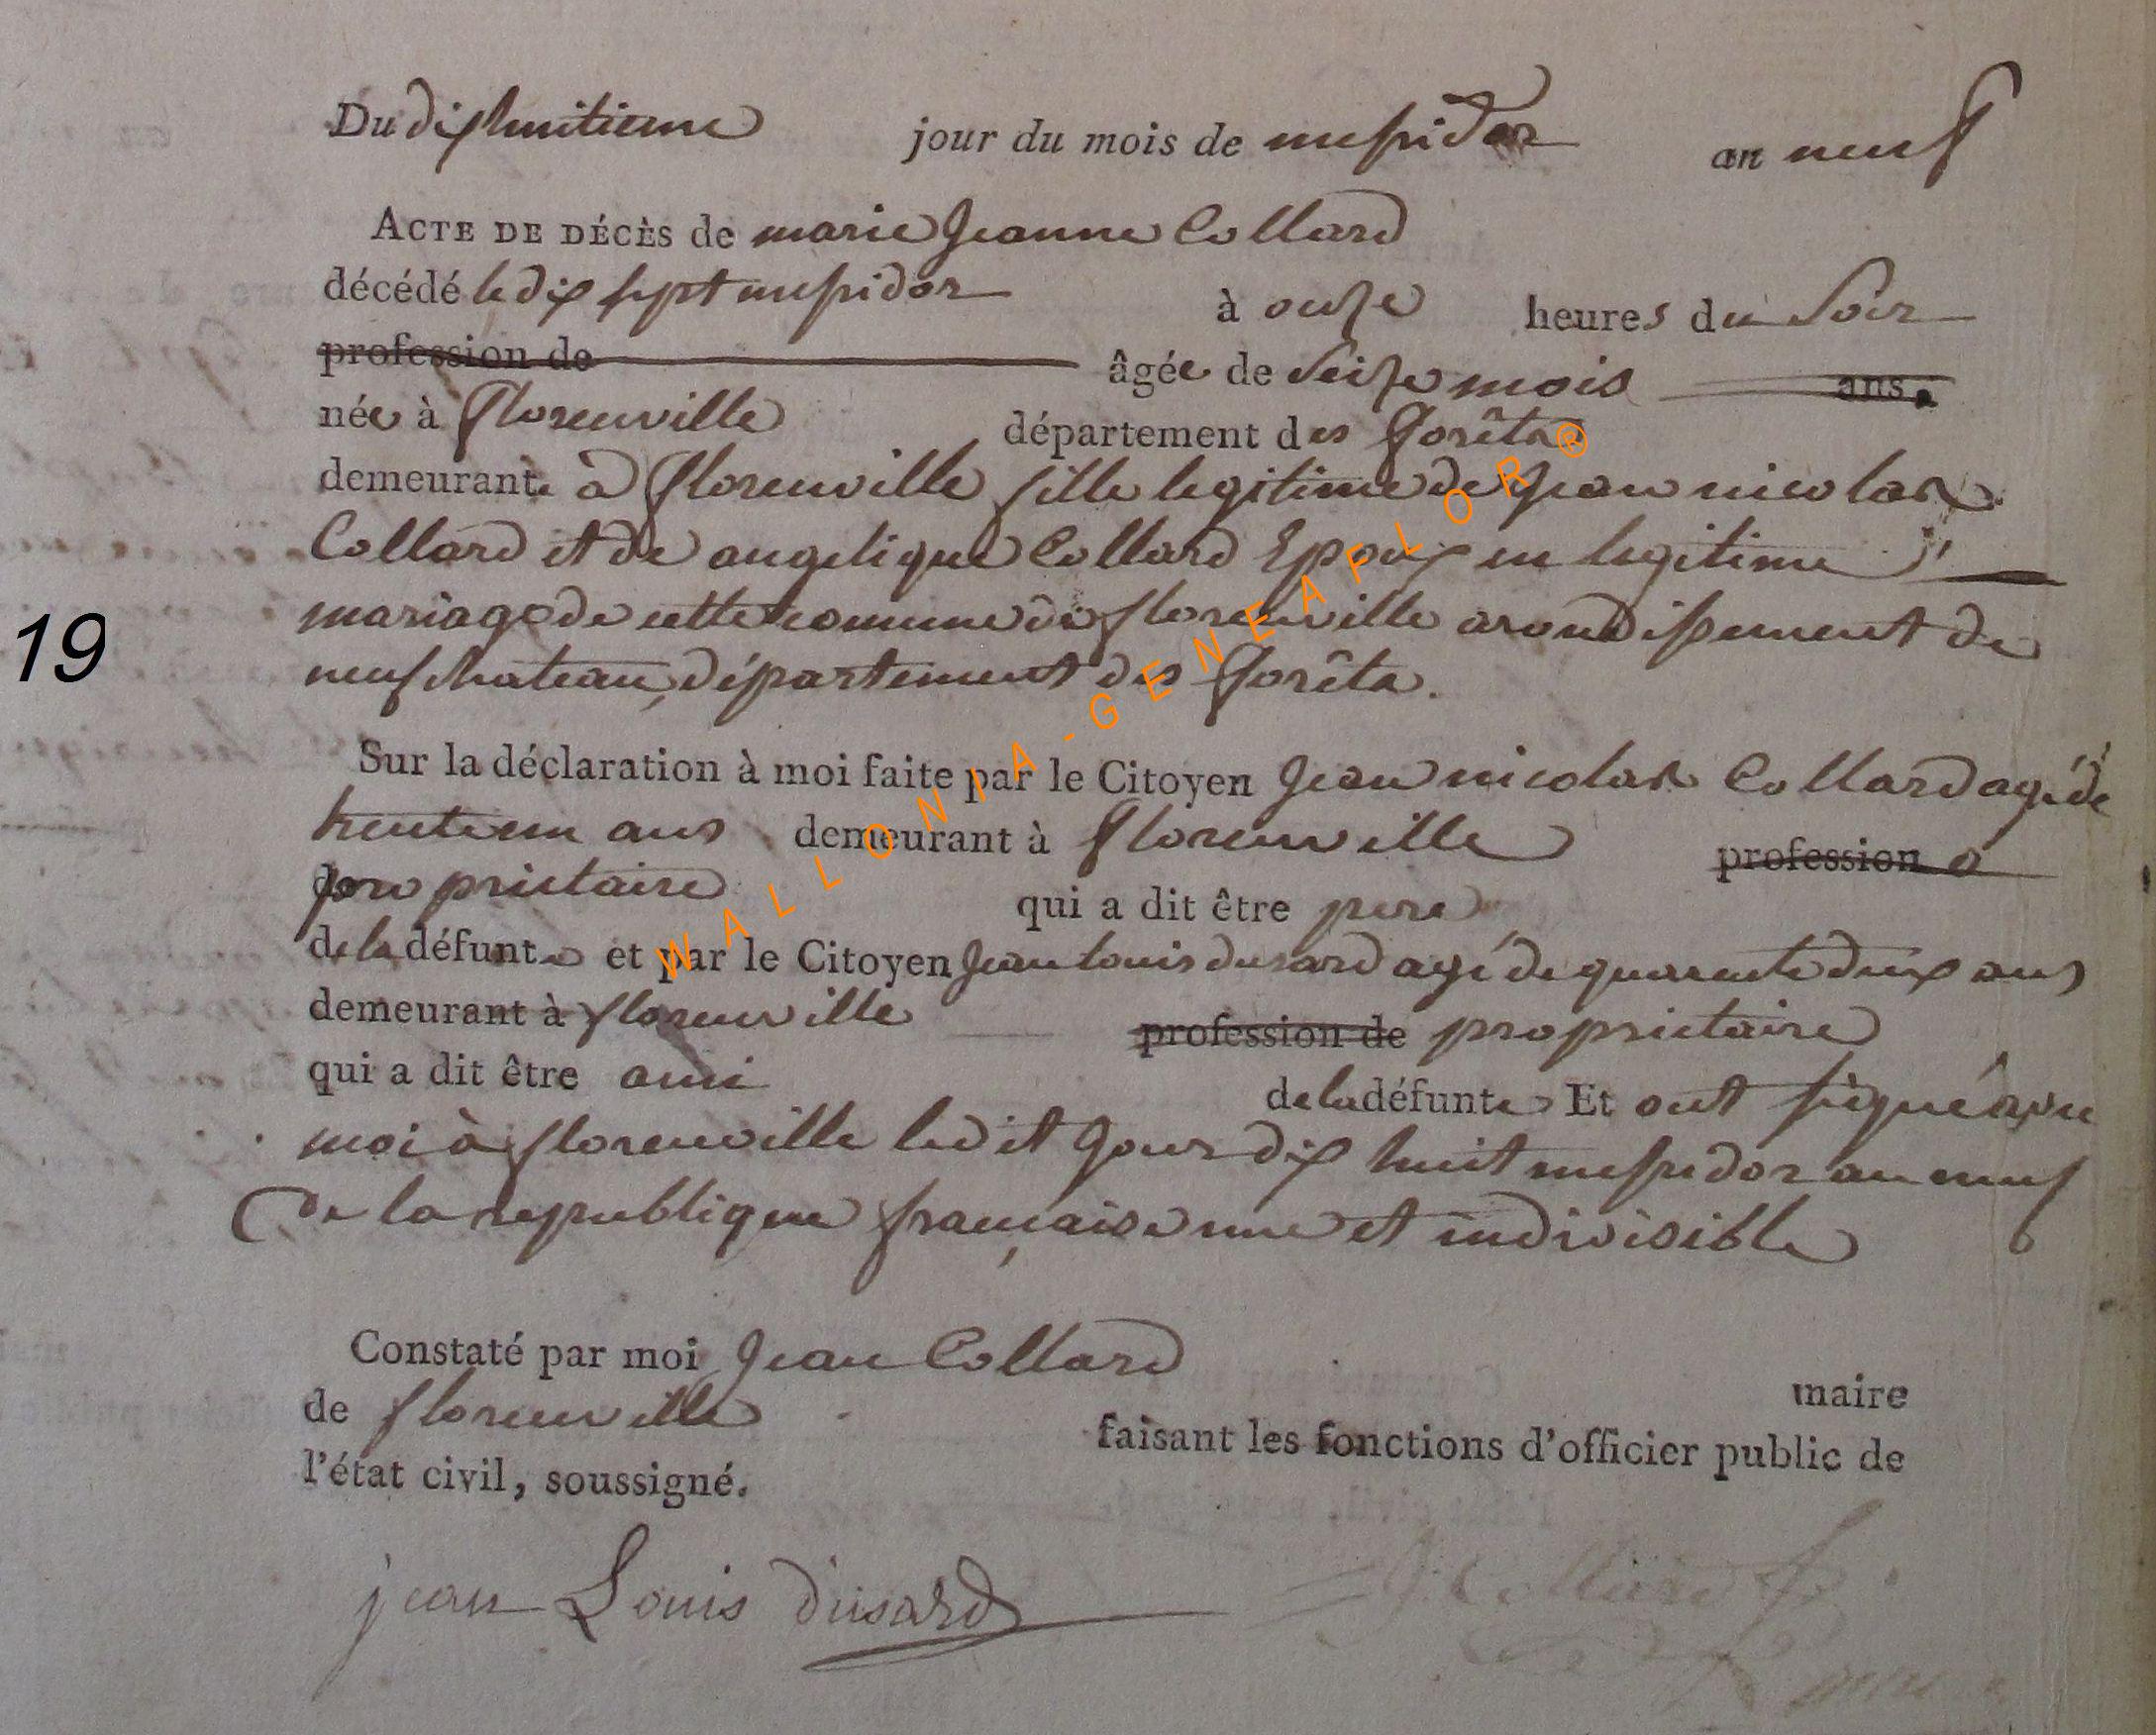 Du dixhuitieme jour du mois de messidor an neuf
ACTE DE DÉCÈS de marie Jeanne Collard
décédé le dix sept messidor à onze heures du Soir
profession de âgée de Seize mois ans.
née à florenville département des forêts
demeurante à florenville fille legitime de Jean nicolas
Collard et de angelique Collard Epoux en legitime
mariage de cette comune de florenville arondissement de
neufchateau, département des forêts.
19
Sur la déclaration à moi faite par le Citoyen Jean nicolas Collard agé de
trente un ans demeurant à florenville profession
propriétaire qui a dit être pere
de la défunte et par le Citoyen Jean Louis dusard agé de quarente deux ans
demeurant à florenville profession de propriétaire
qui a dit être ami de la défunte Et ont signé avec
moi à florenville ledit Jour dix huit messidor an neuf
de la republique française une et indivisible
Constaté par moi Jean Collard maire
de florenville faisant les fonctions d'officier public de
l'état civil, soussigné.
jean Louis dusard J Collard
WALLONIA-GENEAFLOR®